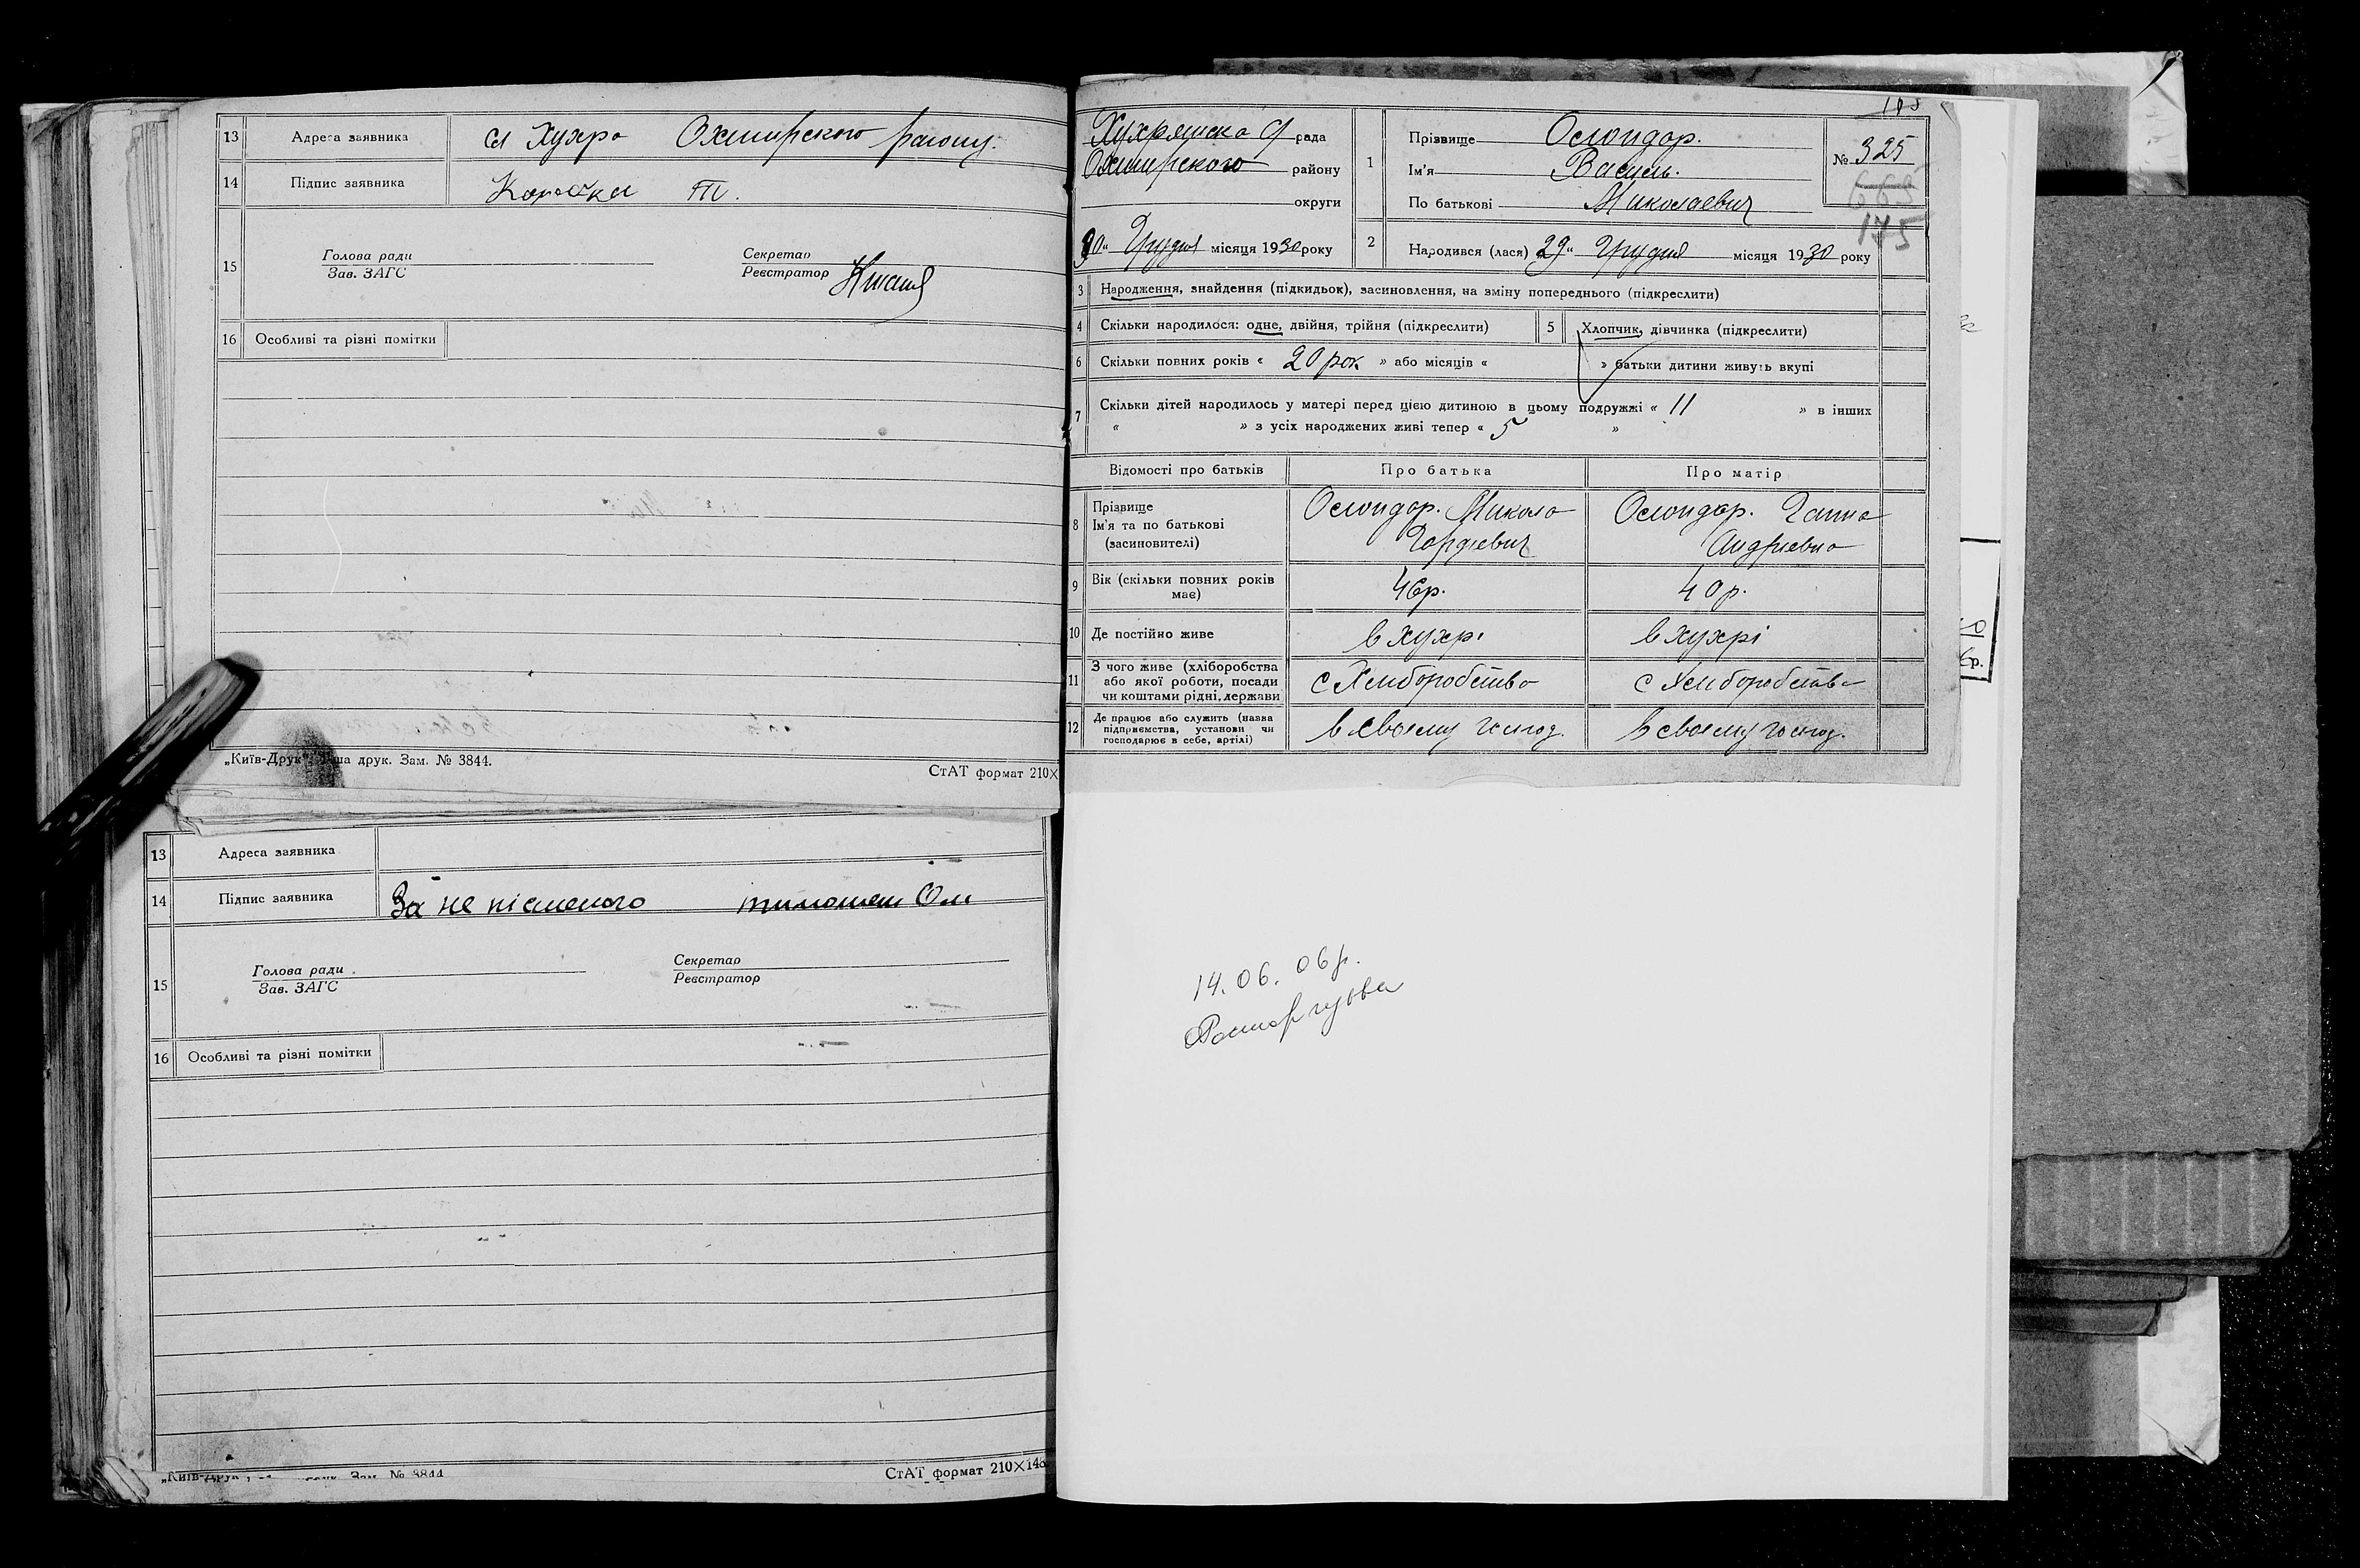 13 Адреса заявника сл Хухра Охтирського району.
14 Підпис заявника Коротка Т.
15 Голова ради
Зав. ЗАГС
Секретар
Реєстратор
16 Особливі та різні помітки
„Київ-Друк" друк. Зам. № 3844.
СтАТ формат 210×
13 Адреса заявника
14 Підпис заявника За не písменого
15 Голова ради
Зав. ЗАГС
Секретар
Реєстратор
16 Особливі та різні помітки
Зам. № 3844
СтАТ формат 210×148
рада
Охтирського району
округи
30 " Грудня місяця 1930 року
1 Прізвище Ослондар.
Ім'я Василь.
По батькові Миколаевич
№ 325
669
175
2 Народився (лася) 29 " Грудня місяця 1930 року
3 Народження, знайдення (підкидьок), засиновлення, на зміну попереднього (підкреслити)
4 Скільки народилося: одне, двійня, трійня (підкреслити)
5 Хлопчик, дівчинка (підкреслити)
6 Скільки повних років « 20 рок » або місяців « » батьки дитини живуть вкупі
7 Скільки дітей народилось у матері перед цією дитиною в цьому подружжі « 11 » в інших
« » з усіх народжених живі тепер « 5 »
Відомості про батьків Про батька Про матір
8 Прізвище
Ім'я та по батькові
(засиновителі)
Ослондар. Микола
Гордіевич
Ослондар. Ганна
Андріевна
9 Вік (скільки повних років має) 46р. 40р.
10 Де постійно живе в Хухрі в Хухрі
11 З чого живе (хліборобства
або якої роботи, посади
чи коштами рідні, держави
с Хліборобства с Хліборобства
12 Де працює або служить (назва
підприємства, установи чи
господарює в себе, артілі)
в своему господ. в своему господ.
14.06.06р.